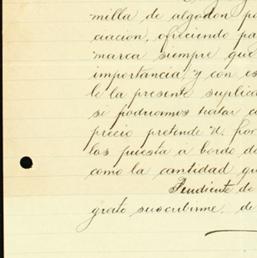 milla de algodon po
ciacion, ofreciendo pa
marca siempre que
importancia, y con es
le la presente suplica
si podriamos tratar c
precio pretende V. por
las puesta a bordo de
como la cantidad qu
Pendiente de
grato suscribirme, de